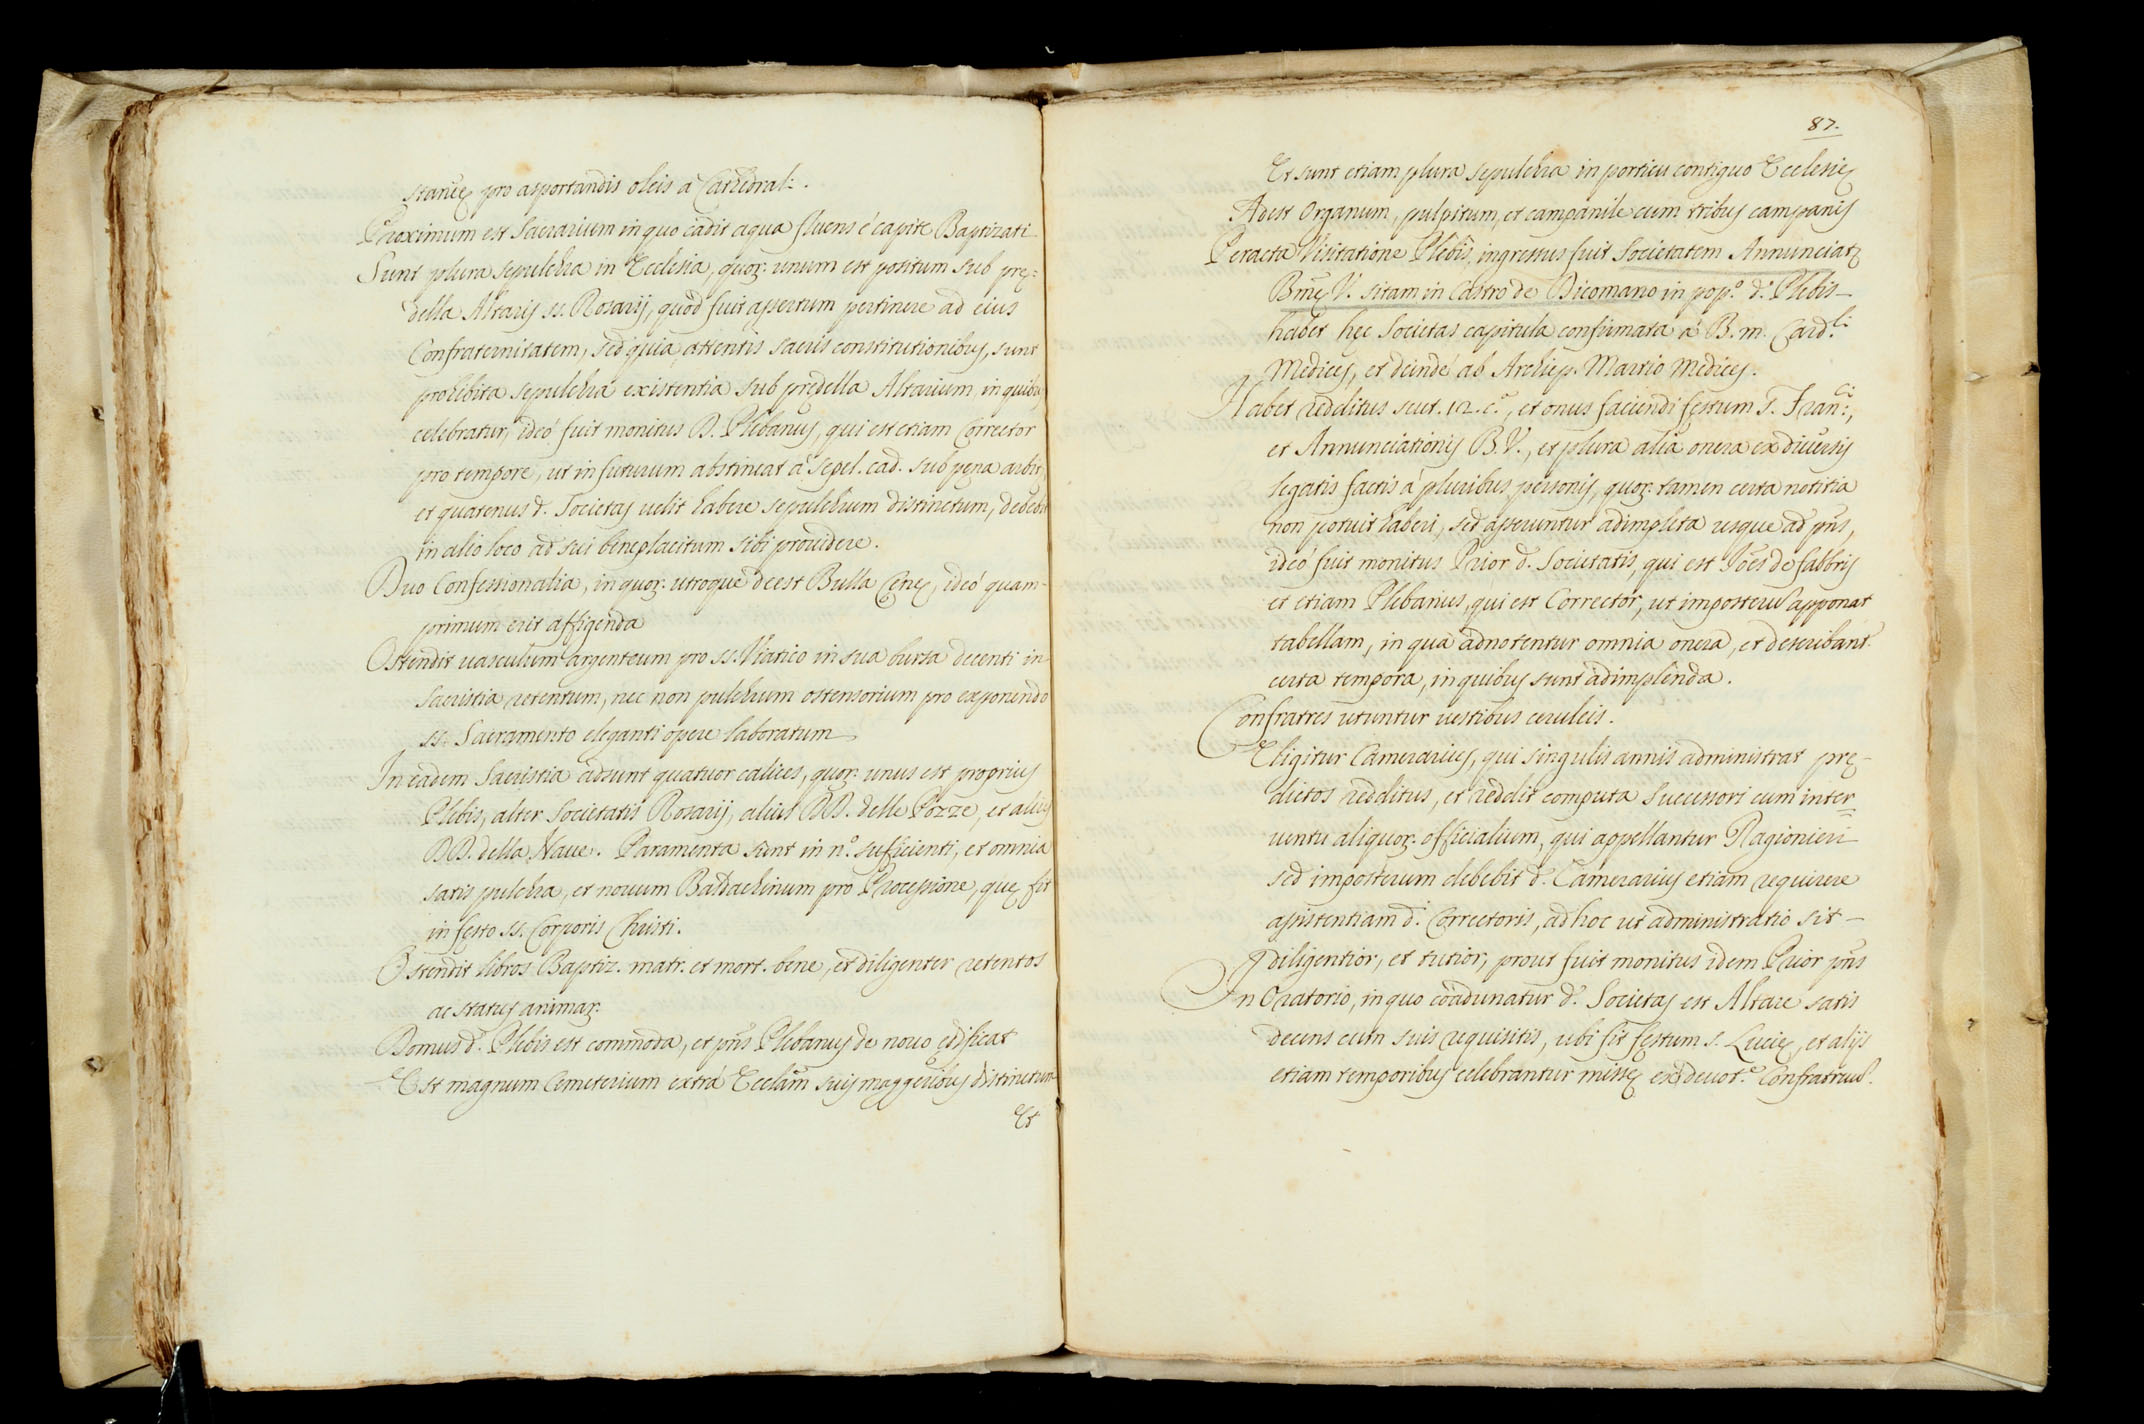 stancę pro asportandis oleis à Cathedral:.
Proximum est Sacrarium in quo cadit aqua fluens è capite Baptizati
Sunt plura sepulchra in Ecclesia, quoꝝ: unum est positum sub prę=
della Altaris ss. Rosarij, quod fuit assertum pertinere ad eius
Confraternitatem, sed quia attentis sacris constitutionibus, sunt
prohibita sepulchra existentia sub predella Altarium, in quibus
celebratur, ideó fuit monitus D. Plebanus, qui est etiam Corrector
pro tempore, ut in futurum abstineat à sepel. cad. sub pęna arbit.
et quatenus d. Societas uelit habere sepulchrum distinctum, debebit
in alio loco ad sui beneplacitum sibi prouidere.
Duo Confessionalia, in quoꝝ: utroque deest Bulla Cęnę, ideó quam-
primum erit affigenda
Ostendit uasculum argenteum pro ss. Viatico in sua bursa decenti in
sacristia retentum, nec non pulchrum ostensorium pro exponendo
ss. Sacramento eleganti opere laboratum
In eadem Sacristia adsunt quatuor calices, quoꝝ: unus est proprius
Plebis, alter Societatis Rosarij, alius DD. delle Pozze, et alius
DD. della Naue. Paramenta sunt in n.º sufficienti, et omnia
satis pulchra, et nouum Baldachinum pro Processione, quę fit
in festo ss. Corporis Christi.
Ostendit libros Baptiz. matr. et mort. bene, et diligenter retentos
ac status animaꝝ:
Domus d. Plebis est commoda, et pñs Plebanus de nouo ędificat
Est magnum Cemeterium extrà Ecclam suis maggeribus distinctum
Et
87.
Et sunt etiam plura sepulchra in porticu contiguo Ecclesię
Adest Organum, pulpitum, et campanile cum tribus campanis
Peracta Visitatione Plebis, ingressus fuit Societatem Annunciatę
Bmę V. sitam in Castro de Dicomano in pop.º d.ę Plebis-
habet hęc Societas capitula confirmata à B. m. Card.li
Medices, et deinde ab Archiep. Martio Medices.
Habet redditus scut. 12. c.ª, et onus faciendi festum S. Franci:,
et Annunciationis B. V., et plura alia onera ex diuersis
legatis factis à pluribus personis, quoꝝ: tamen certa notitia
non potuit haberi, sed asseruntur adimpleta usque ad pñs,
ideó fuit monitus Prior d. Societatis, qui est Joẽs de fabbris
et etiam Plebanus, qui est Corrector, ut imposterũ apponat
tabellam, in qua adnotentur omnia onera, et describant.
certa tempora, in quibus sunt adimplenda.
Confratres utuntur uestibus ceruleis.
Eligitur Camerarius, qui singulis annis administrat prę-
dictos redditus, et reddit computa successori cum inter=
uentu aliquoꝝ: officialium, qui appellantur Ragionieri
sed imposterum debebit d. Camerarius etiam requirere
assistentiam d.i Correctoris, ad hoc ut administratio sit-
diligentior, et tutior, prout fuit monitus idem Prior pñs
In Oratorio, in quo coadunatur d. Societas est Altare satis
decens cum suis requisitis, ubi fit festum S. Lucię, et alijs
etiam temporibus celebrantur missę ex deuot.e Confratrũ.